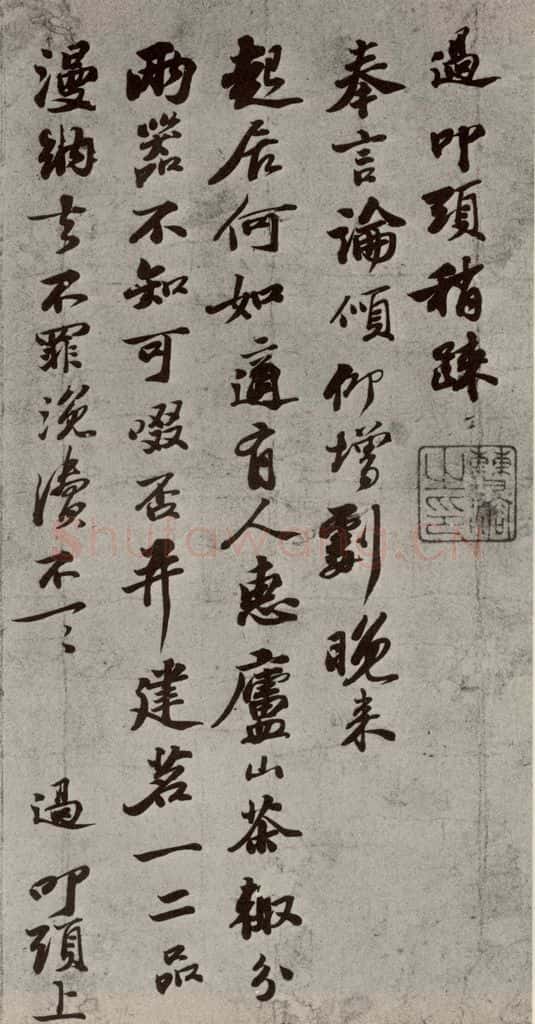 過叩頭稍踈
奉言論傾仰增劇晚来
起居何如適有人惠廬山茶輙分
兩器不知可啜否并建茗一二品
漫納去不罪浼瀆不一〻
過叩頭上
shufawang.cn